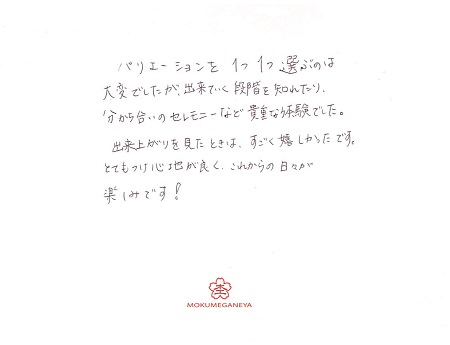 バリエーションを 1つ1つ 選ぶのは
大変でしたが、出来ていく段階を知れたり、
分かち合いのセレモニーなど貴重な体験でした。
出来上がりを見たときは、すごく嬉しかったです。
とてもつけ心地が良く、これからの日々が
楽しみです!
MOKUMEGANEYA